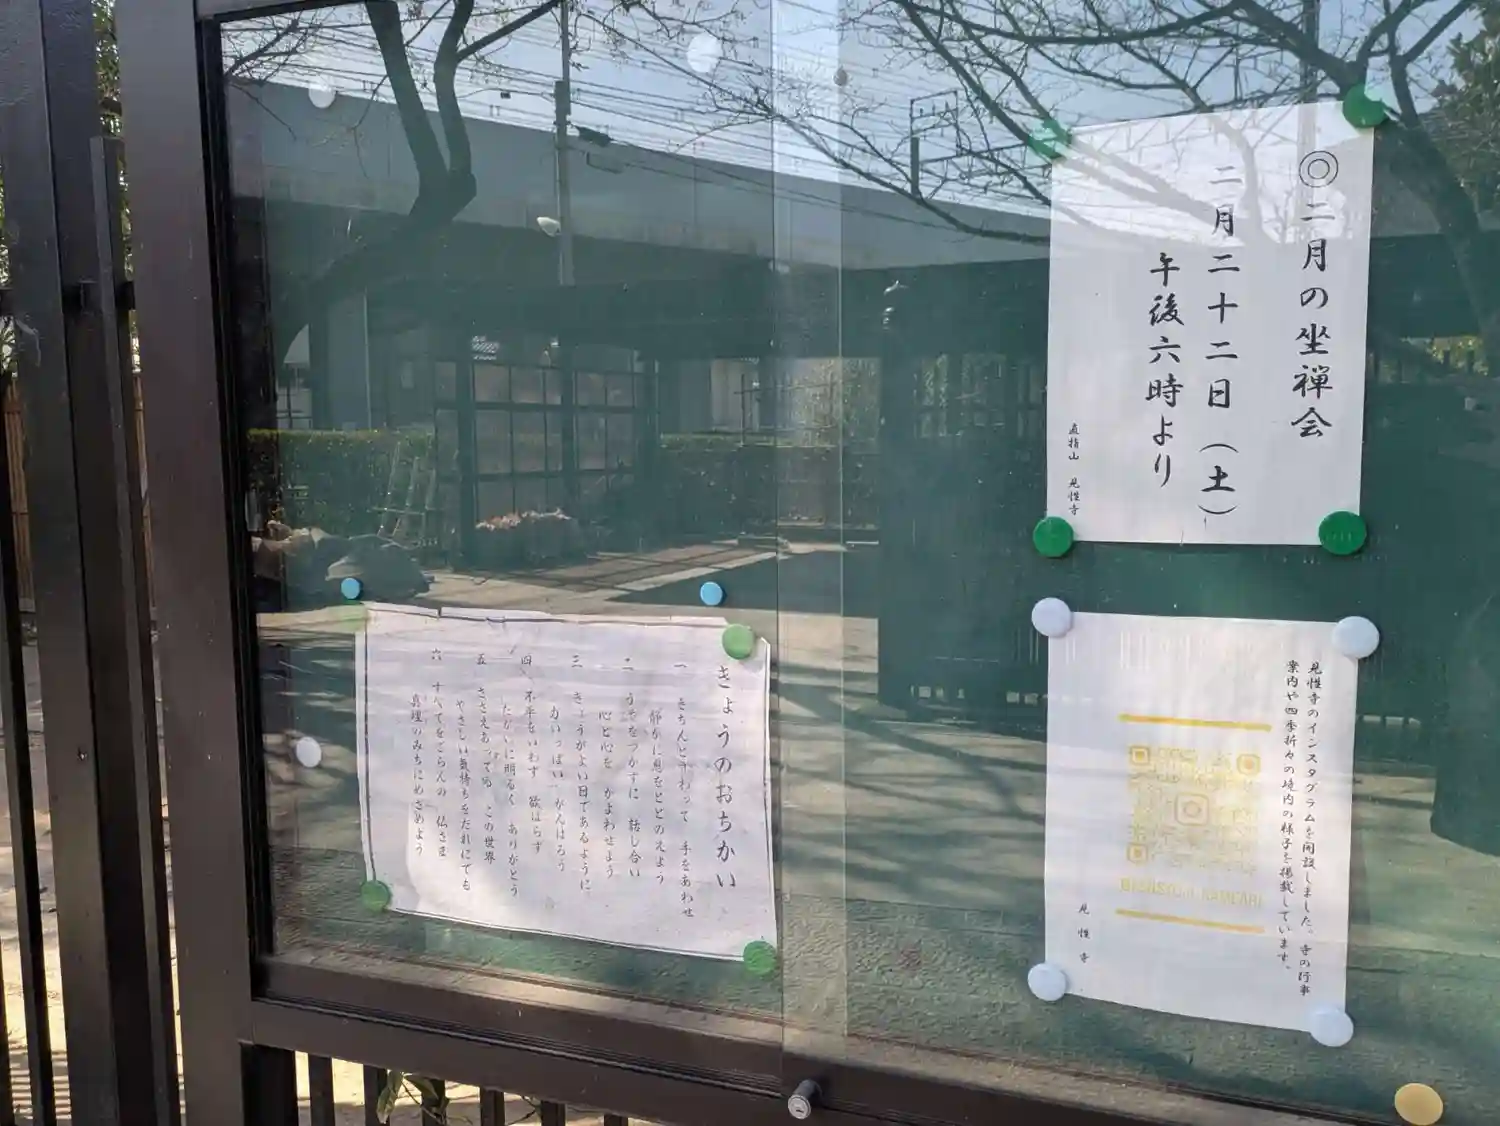 ◎二月の坐禅会
二月二十二日(土)
午後六時より
直指山 見性寺
見性寺のインスタグラムを開設しました。寺の行事
案内や四季折々の境内の様子を掲載しています。
見性寺
きょうのおちかい
一 きちんとすわって 手をあわせ
静かに息をととのえよう
二 うそをつかずに 話し合い
心と心を かよわせよう
三 きょうがよい日であるように
力いっぱい がんばろう
四 不平をいわず 欲ばらず
たがいに明るく ありがとう
五 ささえあってる この世界
やさしい気持ちをだれにでも
六 すべてをごらんの 仏さま
真理のみちにめざめよう